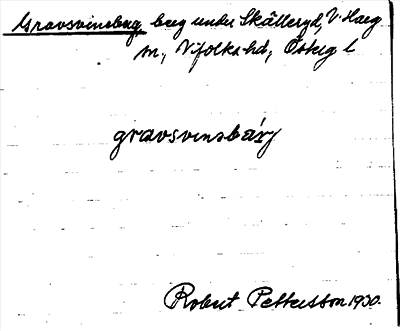 Gravsvinsberg, berg under Skälleryd, V. Harg
sn, Vifolka hd, Östergl
gravsvinsbärj
Robert Pettersson 1930.